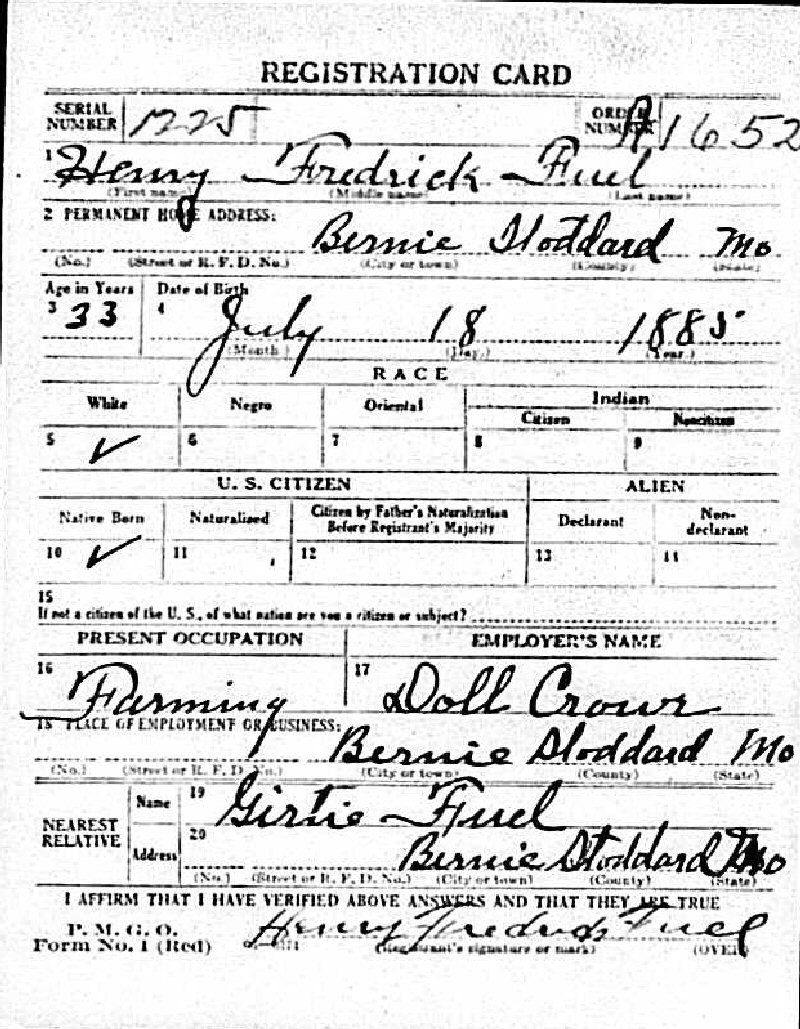 REGISTRATION CARD
SERIAL NUMBER 1225 ORDER NUMBER A1652
1 Henry Fredrick Fuel
(First name) (Middle name) (Last name)
2 PERMANENT HOME ADDRESS:
Bernie Stoddard Mo
(No.) (Street or R. F. D. No.) (City or town) (County) (State)
Age in Years Date of Birth
3 33 4 July 18 1885
(Month.) (Day.) (Year.)
RACE
White Negro Oriental Indian
Citizen Noncitizen
5 ✓ 6 7 8 9
U. S. CITIZEN ALIEN
Native Born Naturalized Citizen by Father's Naturalization Before Registrant's Majority Declarant Non-declarant
10 ✓ 11 12 13 14
15
If not a citizen of the U. S., of what nation are you a citizen or subject?
PRESENT OCCUPATION EMPLOYER'S NAME
16 Farming 17 Doll
18 PLACE OF EMPLOYMENT OR BUSINESS:
Bernie Stoddard Mo
(No.) (Street or R. F. D. No.) (City or town) (County) (State)
NEAREST RELATIVE Name 19 Girtie Fuel
Address 20 Bernie Stoddard Mo
(No.) (Street or R. F. D. No.) (City or town) (County) (State)
I AFFIRM THAT I HAVE VERIFIED ABOVE ANSWERS AND THAT THEY ARE TRUE
P. M. G. O.
Form No. 1 (Red) Henry Fredrick Fuel
(Registrant's signature or mark) (OVER)